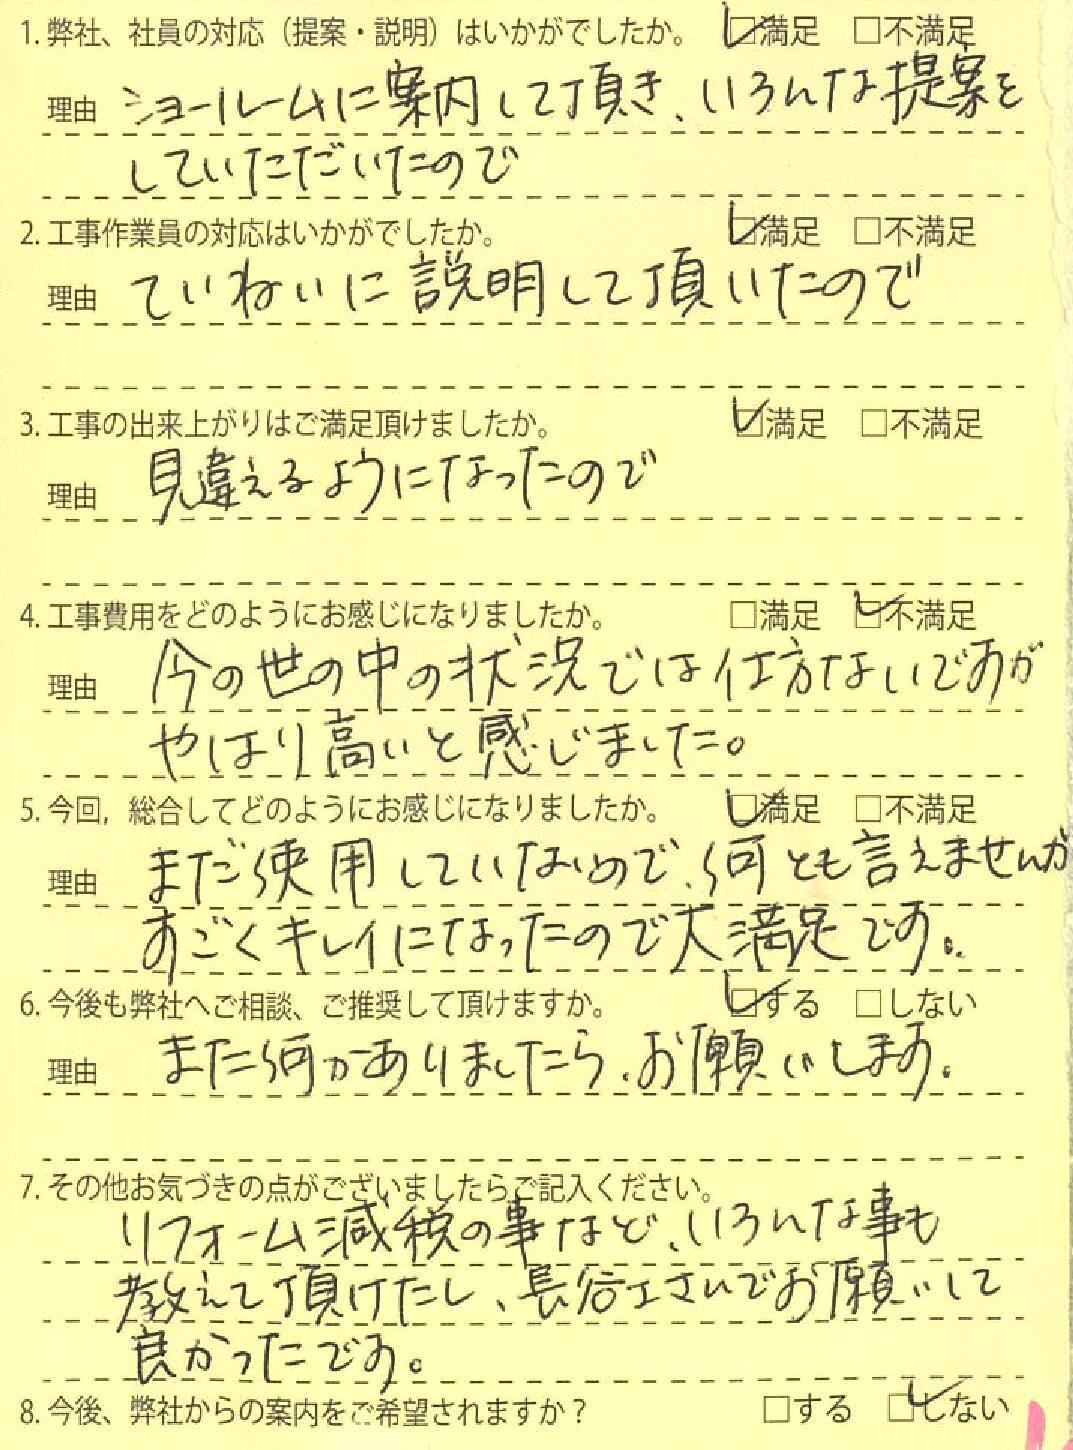 1. 弊社、社員の対応（提案・説明）はいかがでしたか。 ☑満足 □不満足
理由 ショールームに案内して頂き、いろんな提案を
していただいたので
2. 工事作業員の対応はいかがでしたか。 ☑満足 □不満足
理由 ていねいに説明して頂いたので
3. 工事の出来上がりはご満足頂けましたか。 ☑満足 □不満足
理由 見違えるようになったので
4. 工事費用をどのようにお感じになりましたか。 □満足 ☑不満足
理由 今の世の中の状況では仕方ないですが
やはり高いと感じました。
5. 今回，総合してどのようにお感じになりましたか。 ☑満足 □不満足
理由 まだ使用していないので、何とも言えませんが
すごくキレイになったので大満足です。
6. 今後も弊社へご相談、ご推奨して頂けますか。 ☑する □しない
理由 また何かありましたら、お願いします。
7. その他お気づきの点がございましたらご記入ください。
リフォーム減税の事など、いろんな事も
教えて頂けたし、長谷工さんでお願いして
良かったです。
8. 今後、弊社からの案内をご希望されますか？ □する ☑しない